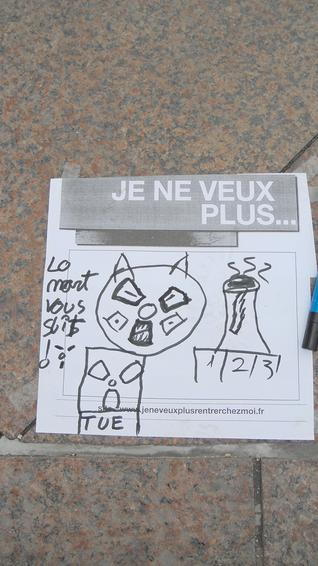 JE NE VEUX
PLUS...
La
mort
vous
suit
!
1 2 3
TUE
www.jeneveuxplusrentrerchezmoi.fr